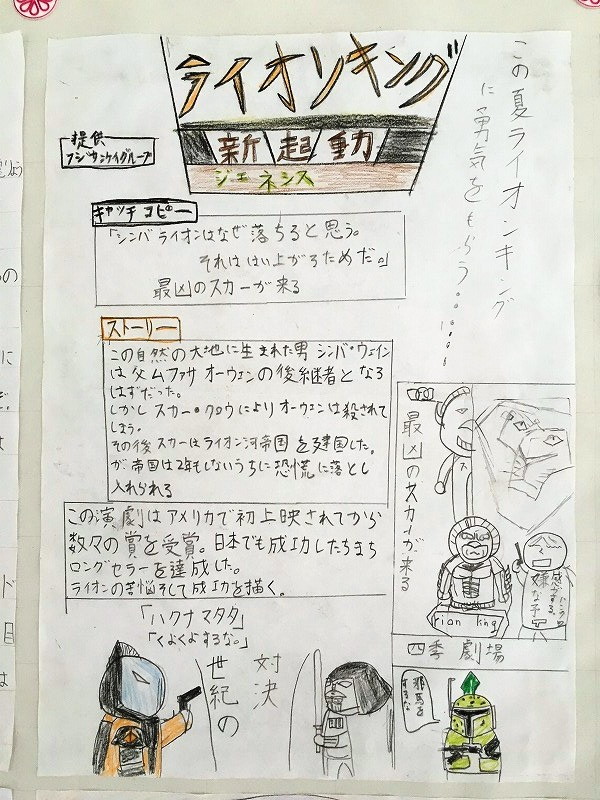 ライオンキング
新起動
ジェネシス
提供
フジサンケイグループ
この夏ライオンキング
に勇気をもらう……
キャッチコピー
「シンバ ライオンはなぜ落ちると思う。
それははい上がるためだ。」
最凶のスカーが来る
ストーリー
この自然の大地に生まれた男 シンバ・ウェイン
は父ムファサ オーウェンの後継者となる
はずだった。
しかし スカー・クロウによりオーウェンは殺されて
しまう。
その後スカーはライオン河帝国を建国した。
が帝国は2年もしないうちに恐慌に落とし
入れられる
この演劇はアメリカで初上映されてから
数々の賞を受賞。日本でも成功したちまち
ロングセラーを達成した。
ライオンの苦悩そして成功を描く。
最凶のスカーが来る
rion king
嫌な予
四季劇場
「ハクナマタタ」
「くよくよするな。」
世紀の
対決
邪魔を
するな